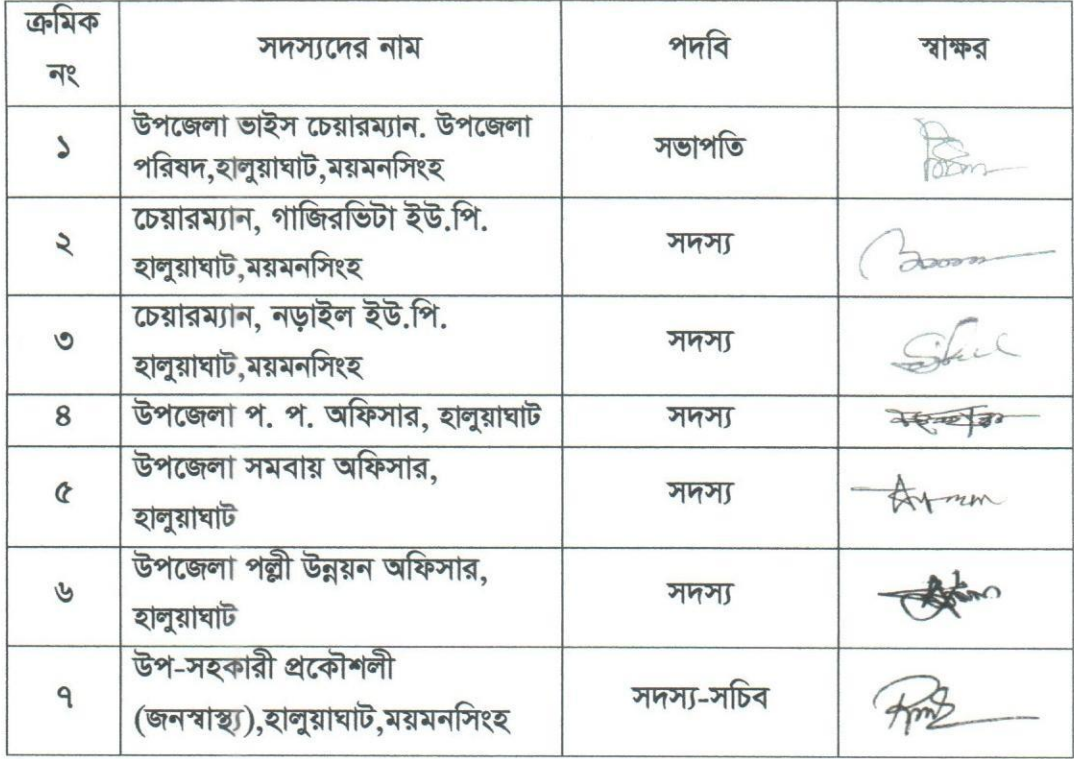 ক্রমিক নং সদস্যদের নাম পদবি স্বাক্ষর
১ উপজেলা ভাইস চেয়ারম্যান. উপজেলা পরিষদ,হালুয়াঘাট,ময়মনসিংহ সভাপতি
২ চেয়ারম্যান, গাজিরভিটা ইউ.পি. হালুয়াঘাট,ময়মনসিংহ সদস্য
৩ চেয়ারম্যান, নড়াইল ইউ.পি. হালুয়াঘাট,ময়মনসিংহ সদস্য
৪ উপজেলা প. প. অফিসার, হালুয়াঘাট সদস্য
৫ উপজেলা সমবায় অফিসার, হালুয়াঘাট সদস্য
৬ উপজেলা পল্লী উন্নয়ন অফিসার, হালুয়াঘাট সদস্য
৭ উপ-সহকারী প্রকৌশলী (জনস্বাস্থ্য),হালুয়াঘাট,ময়মনসিংহ সদস্য-সচিব